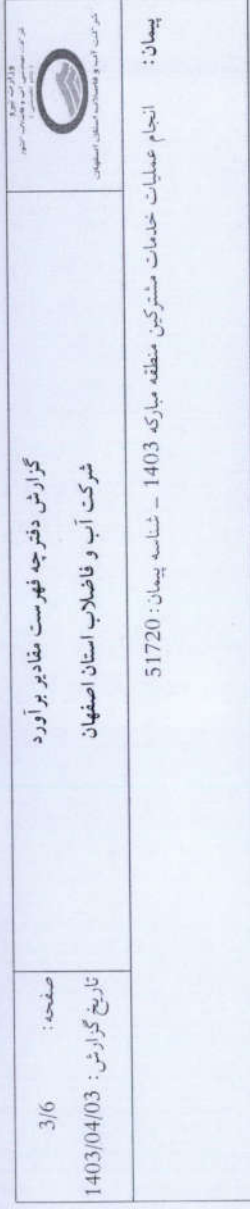 وزارت نیرو
شرکت مهندسی آب و فاضلاب کشور
شرکت آب و فاضلاب استان اصفهان
گزارش دفترچه فهرست مقادیر برآورد
شرکت آب و فاضلاب استان اصفهان
صفحه: 3/6
تاریخ گزارش: 1403/04/03
پیمان: انجام عملیات خدمات مشترکین منطقه مبارکه 1403 - شناسه پیمان: 51720